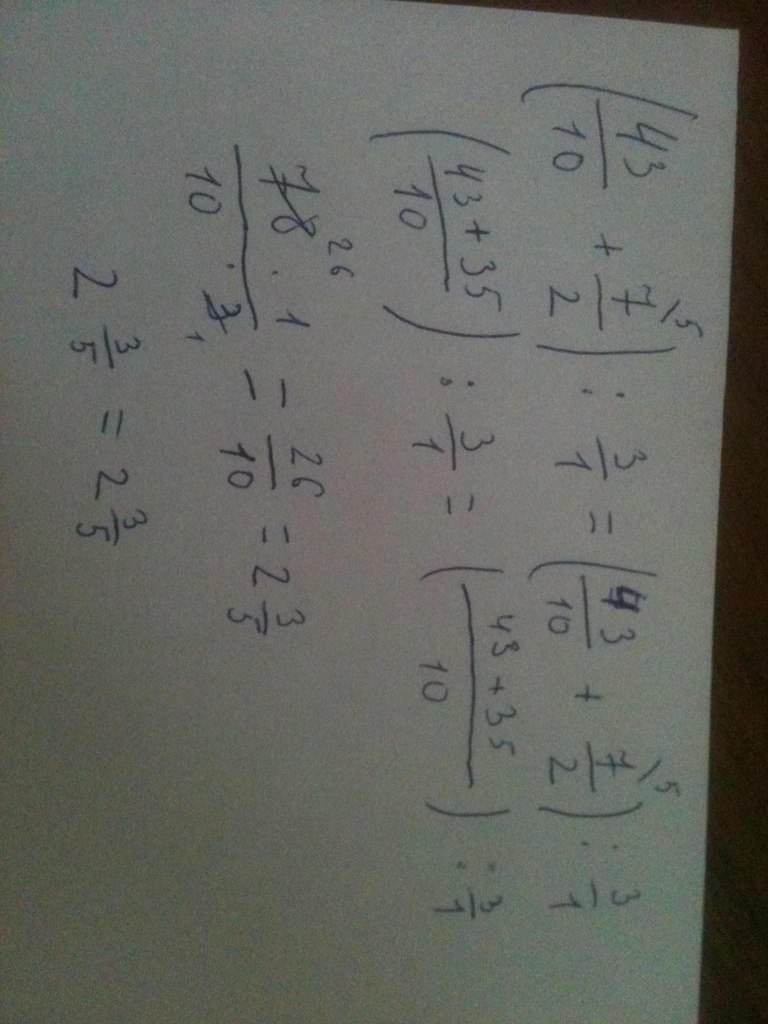 (43/10 + 7/2 \5) : 3/1 = (43/10 + 7/2 \5) : 3/1
(43+35/10) : 3/1 = (43+35/10) : 3/1
78 26 · 1/10 · 3 1 = 26/10 = 2 3/5
2 3/5 = 2 3/5